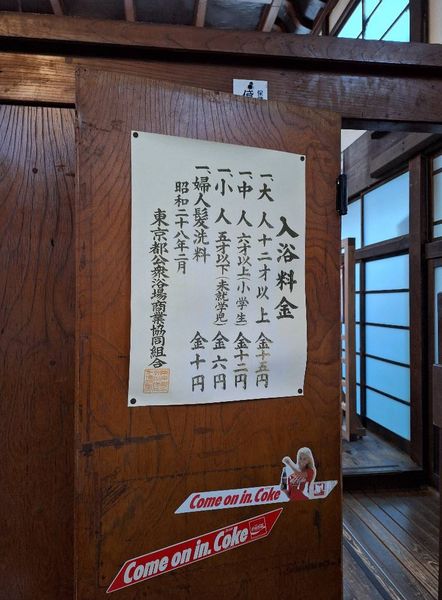 入浴料金
一、大人 十二才以上 金十五円
一、中人 六才以上(小学生) 金十二円
一、小人 五才以下(未就学児) 金六円
一、婦人髪洗料 金十円
昭和二十八年二月
東京都公衆浴場商業協同組合
Come on in. Coke
Come on in. Coke